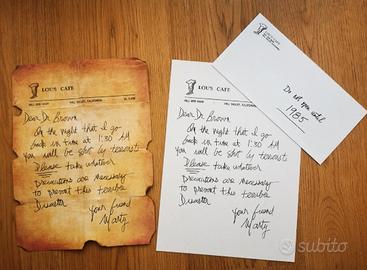 LOU'S CAFE
HILL VALLEY, CALIFORNIA
Dear Dr. Brown
On the night that I go
back in time at 1:30 AM
You will be shot by terrorist
Please take whatever
Precautions are necessary
to prevent this terrible
Disaster
Your friend
Marty
LOU'S CAFE
HILL VALLEY, CALIFORNIA
Dear Dr. Brown
On the night that I go
back in time at 1:30 AM
You will be shot by terrorist
Please take whatever
Precautions are necessary
to prevent this terrible
Disaster
Your friend
Marty
Do not open until
1985
subito